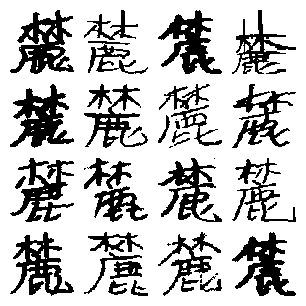 麓麓麓麓
麓麓麓麓
麓麓麓麓
麓麓麓麓